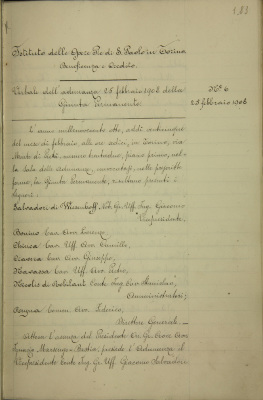 Istituto delle Opere Pie di S. Paolo in Torino
Beneficenza e Credito.
Verbale dell'adunanza 25 febbraio 1908 della
Giunta Permanente
N° 6
25 febbraio 1908
L'anno millenovecento otto, addì venticinque
del mese di febbraio, alle ore sedici, in Torino, via
Monte di Pietà, numero trentadue, piano primo, nel
la Sala delle Adunanze, convocatasi nelle prescritte
forme, la Giunta Permanente, risultano presenti i
Signori:
Salvadori di Wiesenhoff, Cte. Gr. Uff. Ing. Giacomo
Vicepresidente;
Bonino Cav. Avv. Lorenzo
Chiesa Cav. Uff. Avv. Camillo
Craveri Cav. Avv. Giuseppe,
Cav. Uff. Avv. Pedro,
Nicolis di Robilant Conte Ing. Cav. Stanislao,
Amministratori;
Comm. Avv. Federico,
Direttore Generale. —
Attesa l'assenza del Presidente Cav. Gr. Croce Avv.
Ignazio Marsengo-Bastia, presiede l'Adunanza il
Vicepresidente Conte Ing. Gr. Uff. Giacomo Salvadori